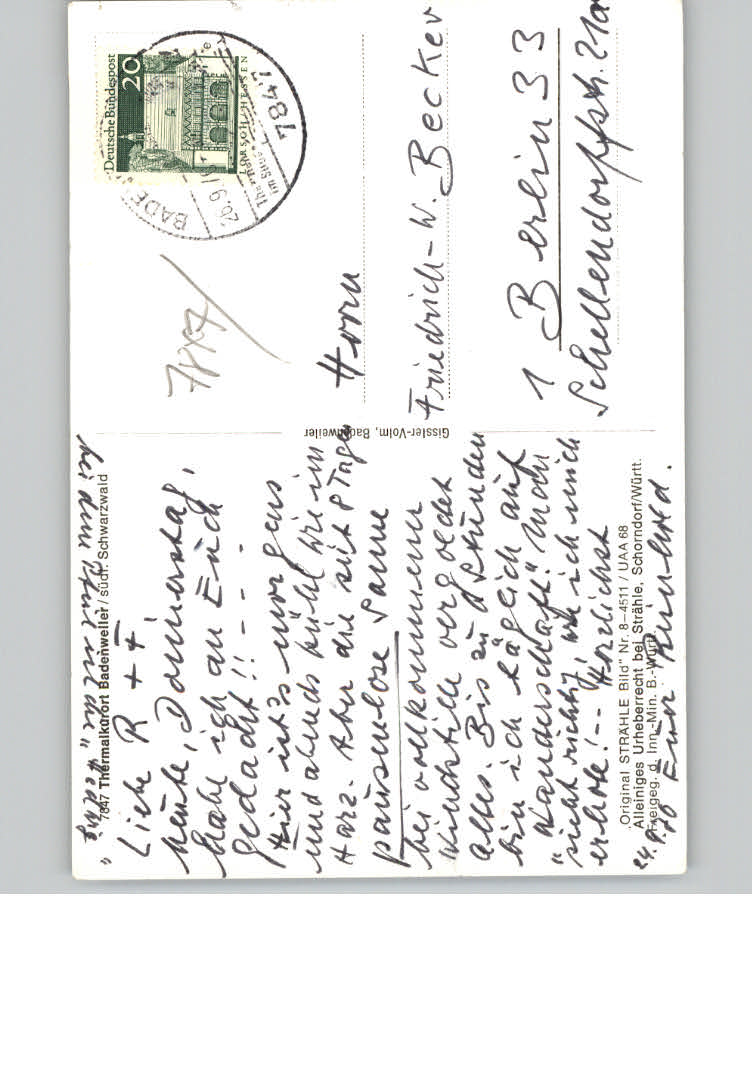 bei dem Pfeil ist die „Hedwig“
7847 Thermalkurort Badenweiler/südl. Schwarzwald
Liebe R + F,
heute, Donnerstag,
habe ich an Euch
gedacht!! - - -
Hier ist's morgens
und abends kühl wie im
Harz. Aber die seit 8 Tagen
pausenlose Sonne
bei vollkommener
Windstille vergoldet
alles. Bis zu 4 Stunden
bin ich täglich auf
Wanderschaft. Macht
sicht richtig, wie ich mich
erhole! -- Herzlichst
24.9.70 Euer Reinhold.
„Original STRÄHLE Bild" Nr. 8-4511 / UAA 68
Alleiniges Urheberrecht bei Strähle, Schorndorf/Württ.
Freigeg. d. Inn.-Min. B.-Württ.
Gissler-Volm, Badenweiler
Deutsche Bundespost
20
LORSCH · HESSEN
7847
BADEN
26.9.
Thermalkurort
im Süd
7847
Herrn
Friedrich-W. Becker
1 Berlin 33
Schellendorffstr. 21a